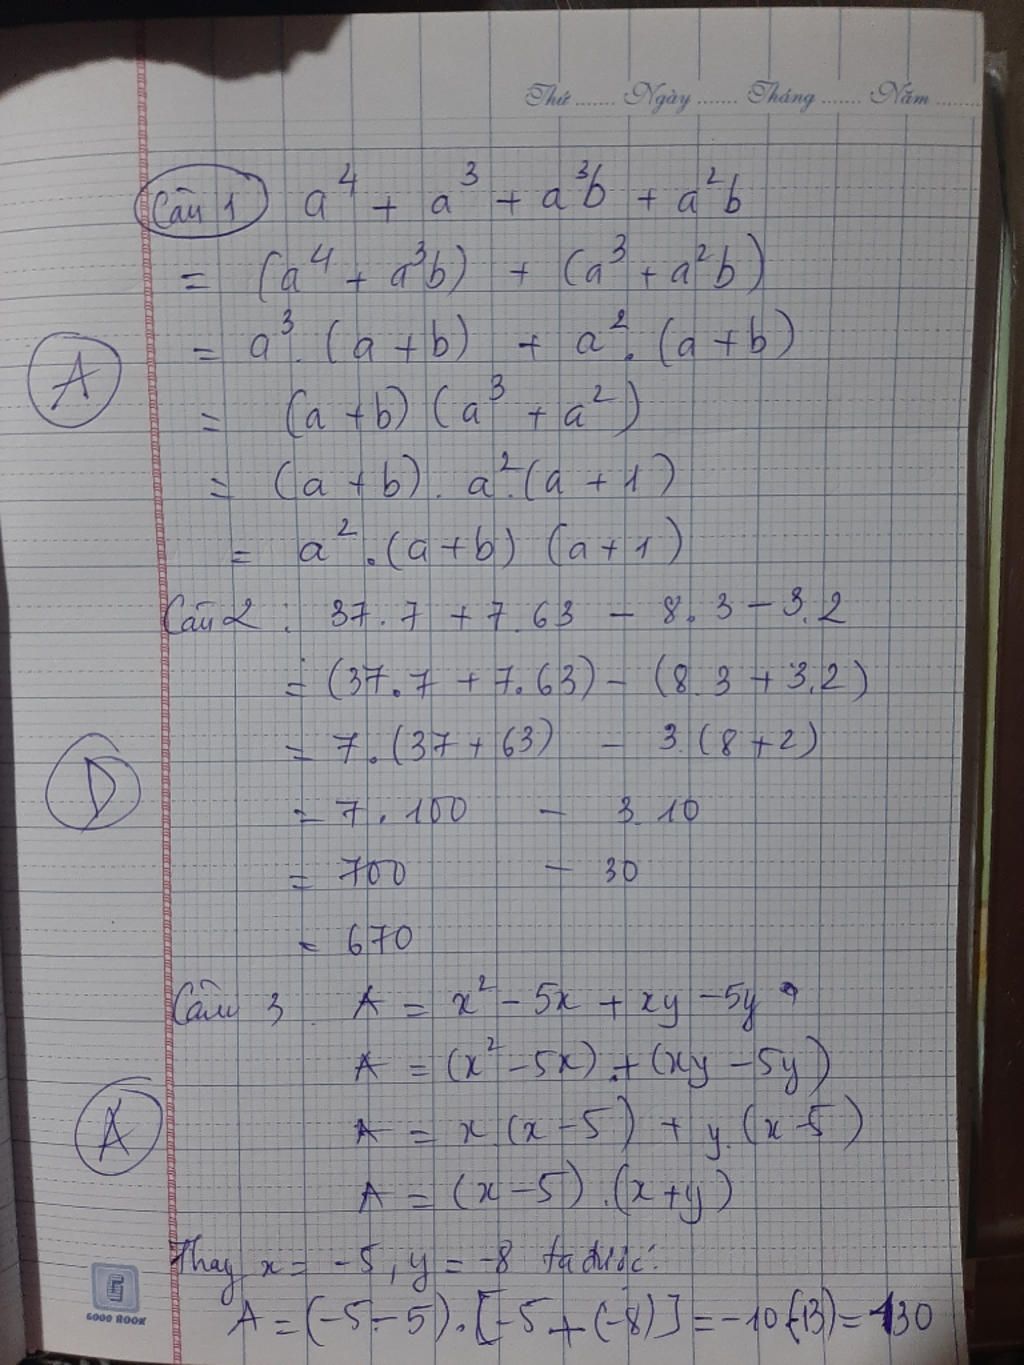 Thứ ...... Ngày ...... Tháng ...... Năm ......
Câu 1 a⁴ + a³ + a³b + a²b
= (a⁴ + a³b) + (a³ + a²b)
= a³.(a+b) + a².(a+b)
A
= (a+b)(a³ + a²)
= (a+b).a².(a+1)
= a².(a+b)(a+1)
Câu 2: 37.7 + 7.63 - 8.3 - 3.2
= (37.7 + 7.63) - (8.3 + 3.2)
= 7.(37+63) - 3.(8+2)
D
= 7.100 - 3.10
= 700 - 30
= 670
Câu 3 A = x² - 5x + xy - 5y
A = (x² - 5x) + (xy - 5y)
A
A = x.(x-5) + y.(x-5)
A = (x-5).(x+y)
Thay x = -5, y = -8 ta được:
A = (-5-5).[-5+(-8)] = -10(-13) = 130
GOOD BOOK